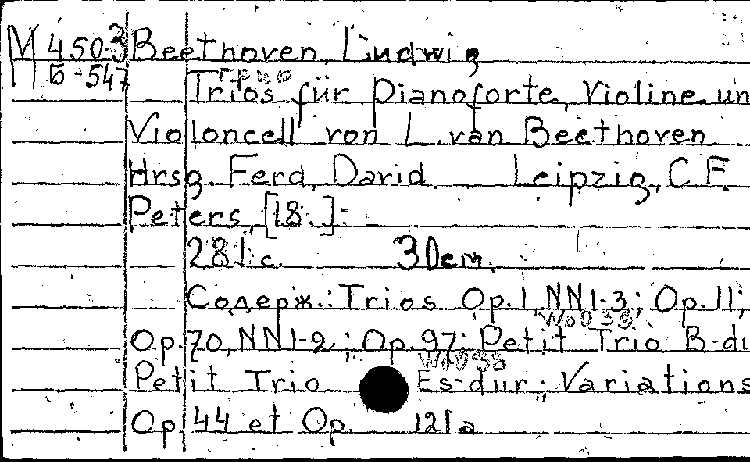 М 450-3 Beethoven, Ludwig
Б-547 Трио
Trios für Pianoforte, Violine un
Violoncell von L. van Beethoven
Hrsg. Ferd. David Leipzig, C.F.
Peters, [18..]:
281 c. 30 см.
Содерж.: Trios Op.1, NN1-3; Op.11;
WoO 39,
Op.70, NN1-2; Op.97; Petit Trio B-du
WoO 38
Petit Trio Es-dur; Variations
Op. 44 et Op. 121a